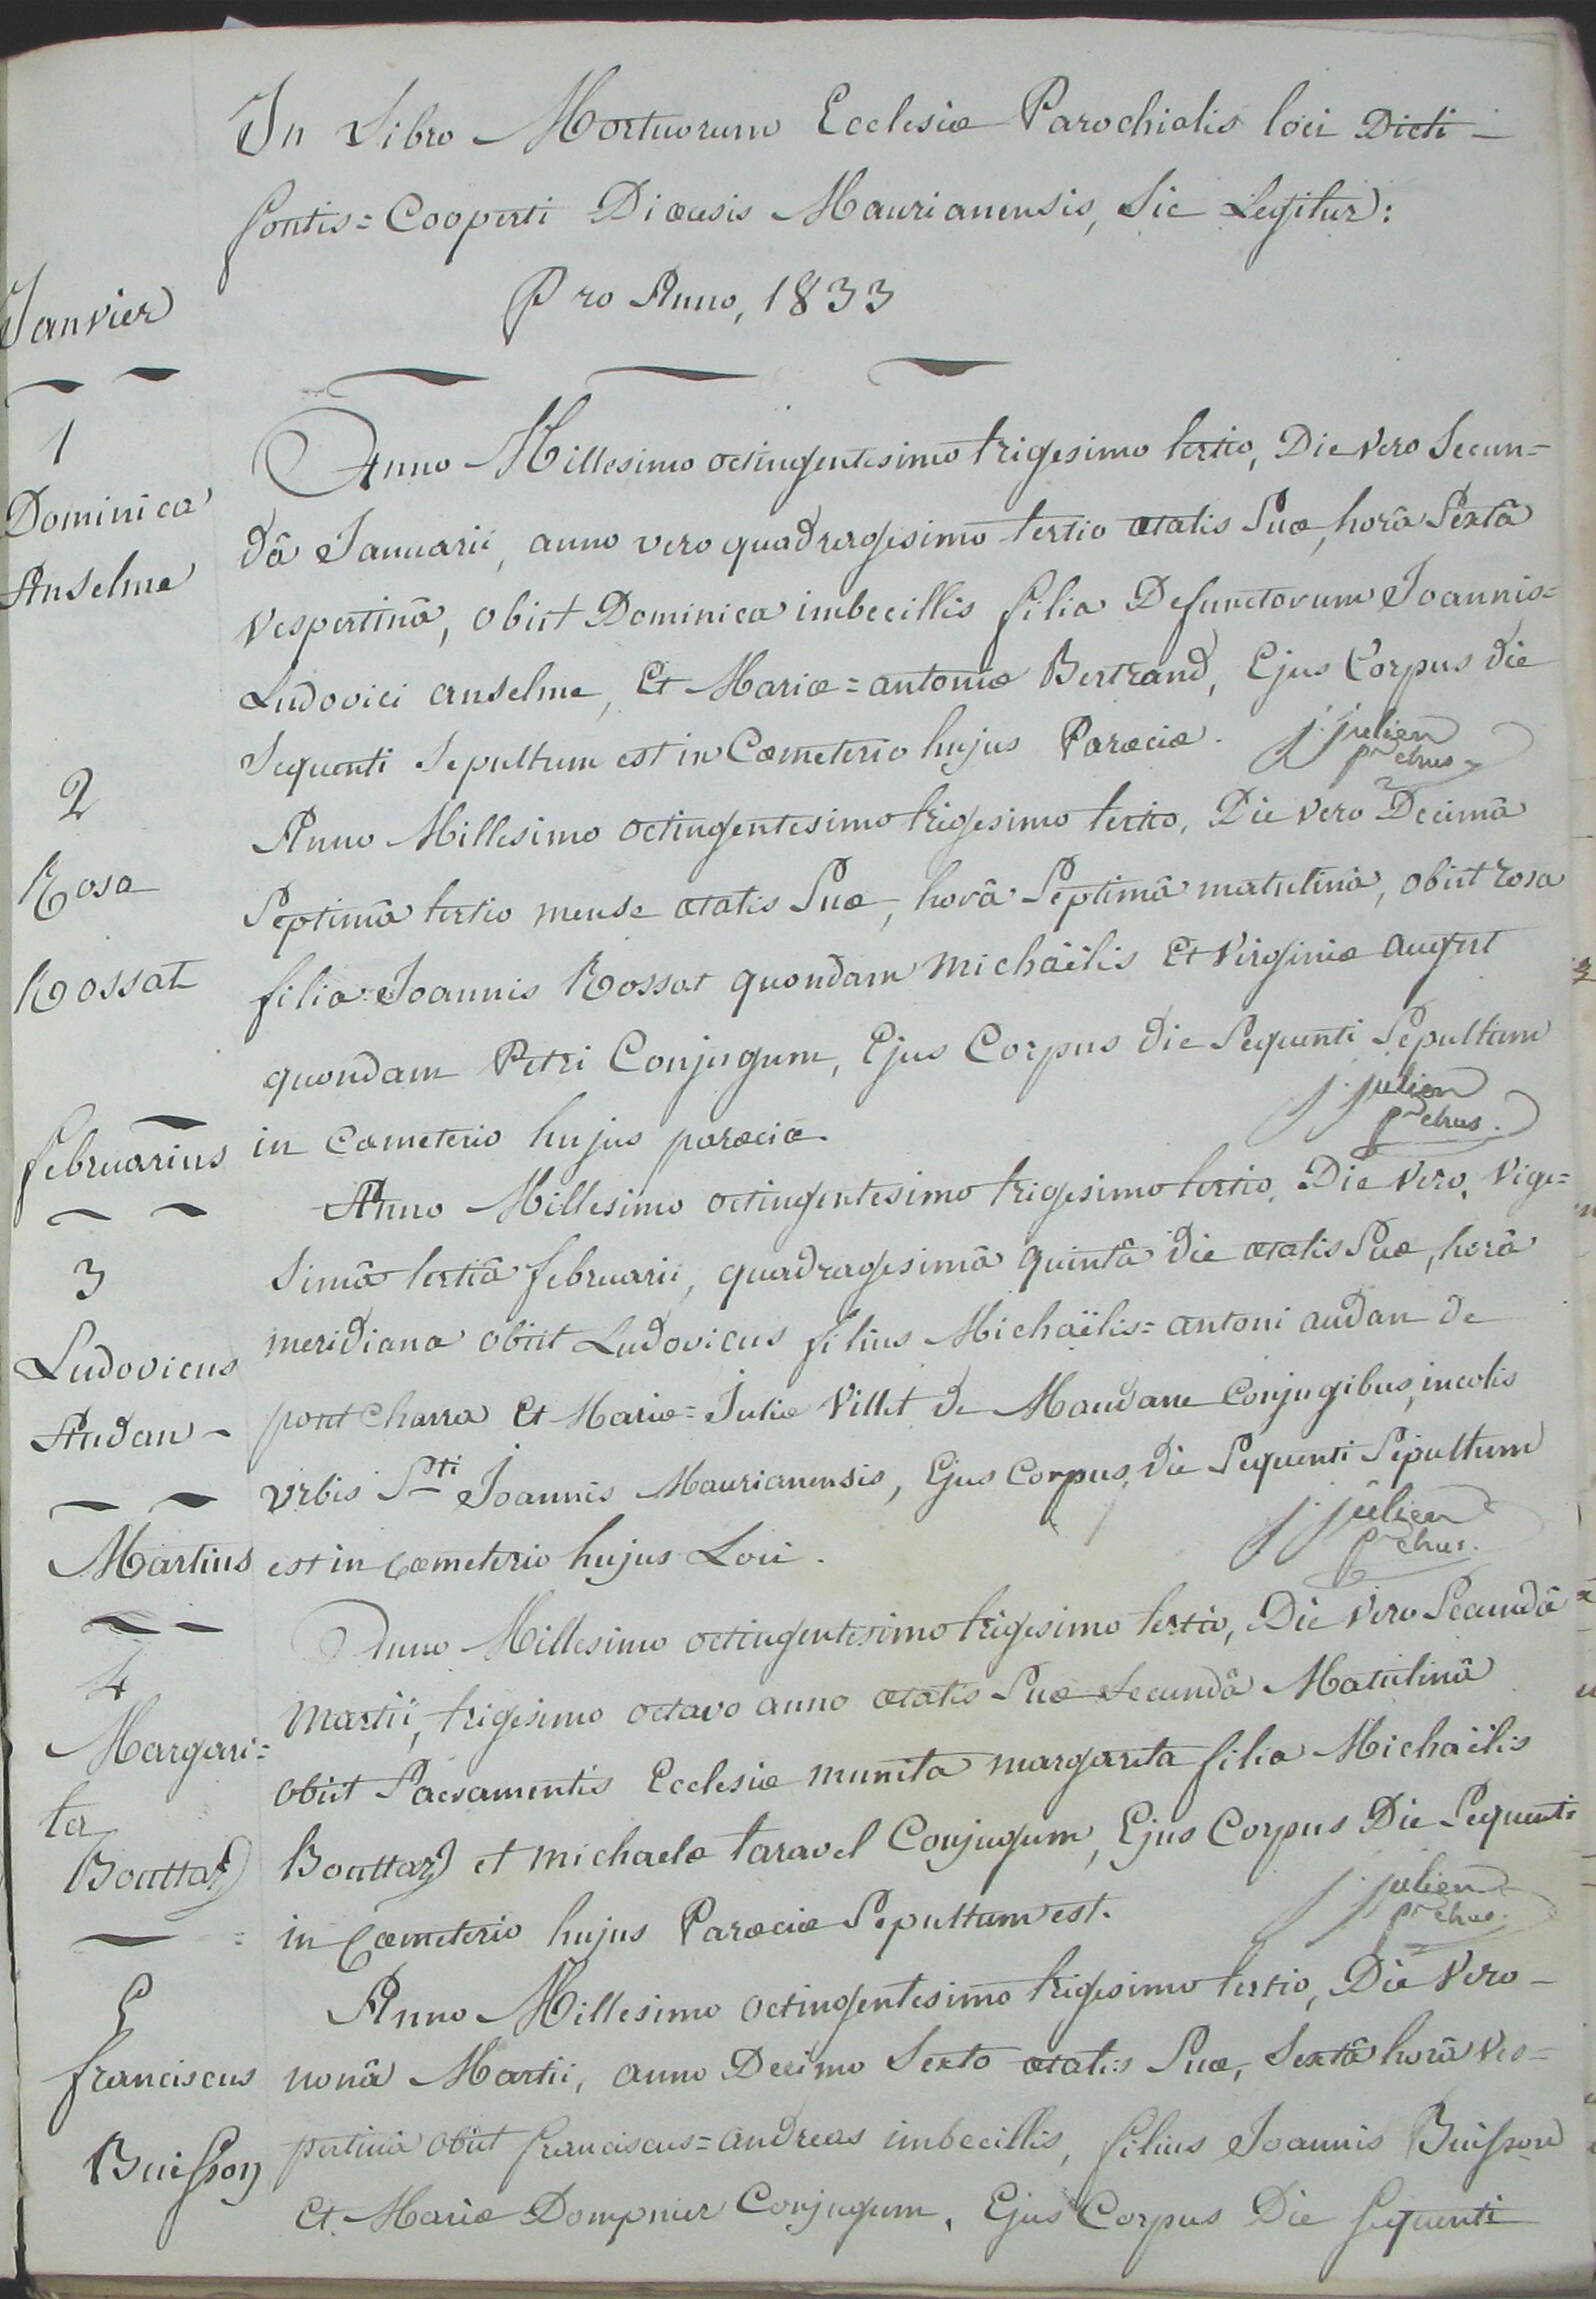 In Libro Mortuorum Ecclesiæ Parochialis loci Dicti –
fontis=Cooperti Diœcesis Maurianensis, Sic Legitur:
Pro Anno, 1833
Janvier
1
Dominica
Anselme
Anno Millesimo octingentesimo trigesimo tertio, Die vero Secun=
dâ Januarii, anno vero quadragesimo tertio ætatis Suæ, horâ Sextâ
Vespertinâ, obiit Dominica imbecillis filia Defunctorum Joannis=
Ludovici anselme, Et Mariæ=antoniæ Bertrand, Ejus Corpus die
Sequenti Sepultum est in Cæmeterio hujus Paræciæ. j. julien
p.r chus
2
Rosa
Rossat
Anno Millesimo octingentesimo trigesimo tertio, Die vero Decimâ
Septimâ tertio mense ætatis Suæ, horâ Septimâ matutinâ, obiit rosa
filia Joannis Rossat quondam Michaëlis Et Virginiæ augert
quondam Petri Conjugum, Ejus Corpus die Sequenti Sepultum
in Cæmeterio hujus paræciæ. j. julien
p.r chus.
februarius
3
Ludovicus
Audan –
Anno Millesimo octingentesimo trigesimo tertio, Die Vero, Vige=
simâ tertiâ februarii, quadragesimâ quintâ die ætatis Suæ, horâ
meridiana obiit Ludovicus filius Michaëlis=antoni audan de
pont charra Et Mariæ=Juliæ Villet de Maudane Conjugibus, incolis
Urbis Sti Joannis Maurianensis, Ejus Corpus, die Sequenti Sepultum
est in Cæmeterio hujus Loci. j. julien
p.r chus.
Martius
4
Margari=
ta
Bouttaz
Anno Millesimo octingentesimo trigesimo tertio, Die Vero Secundâ
Martii, trigesimo octavo anno ætatis Suæ Secundâ Matutinâ
obiit Sacramentis Ecclesiæ munita margarita filia Michaëlis
Bouttaz et michaelæ taravel Conjugum, Ejus Corpus Die Sequenti
in Cæmeterio hujus Paræciæ Sepultum est. j. julien
p.r chus.
5
franciscus
Buisson
Anno Millesimo octingentesimo trigesimo tertio, Die Vero –
nonâ Martii, anno Decimo Sexto ætatis Suæ, Sextâ horâ Ves=
pertinâ obiit franciscus=andreas imbecillis, filius Joannis Buisson
Et Mariæ Dompnier Conjugum, Ejus Corpus Die Sequenti